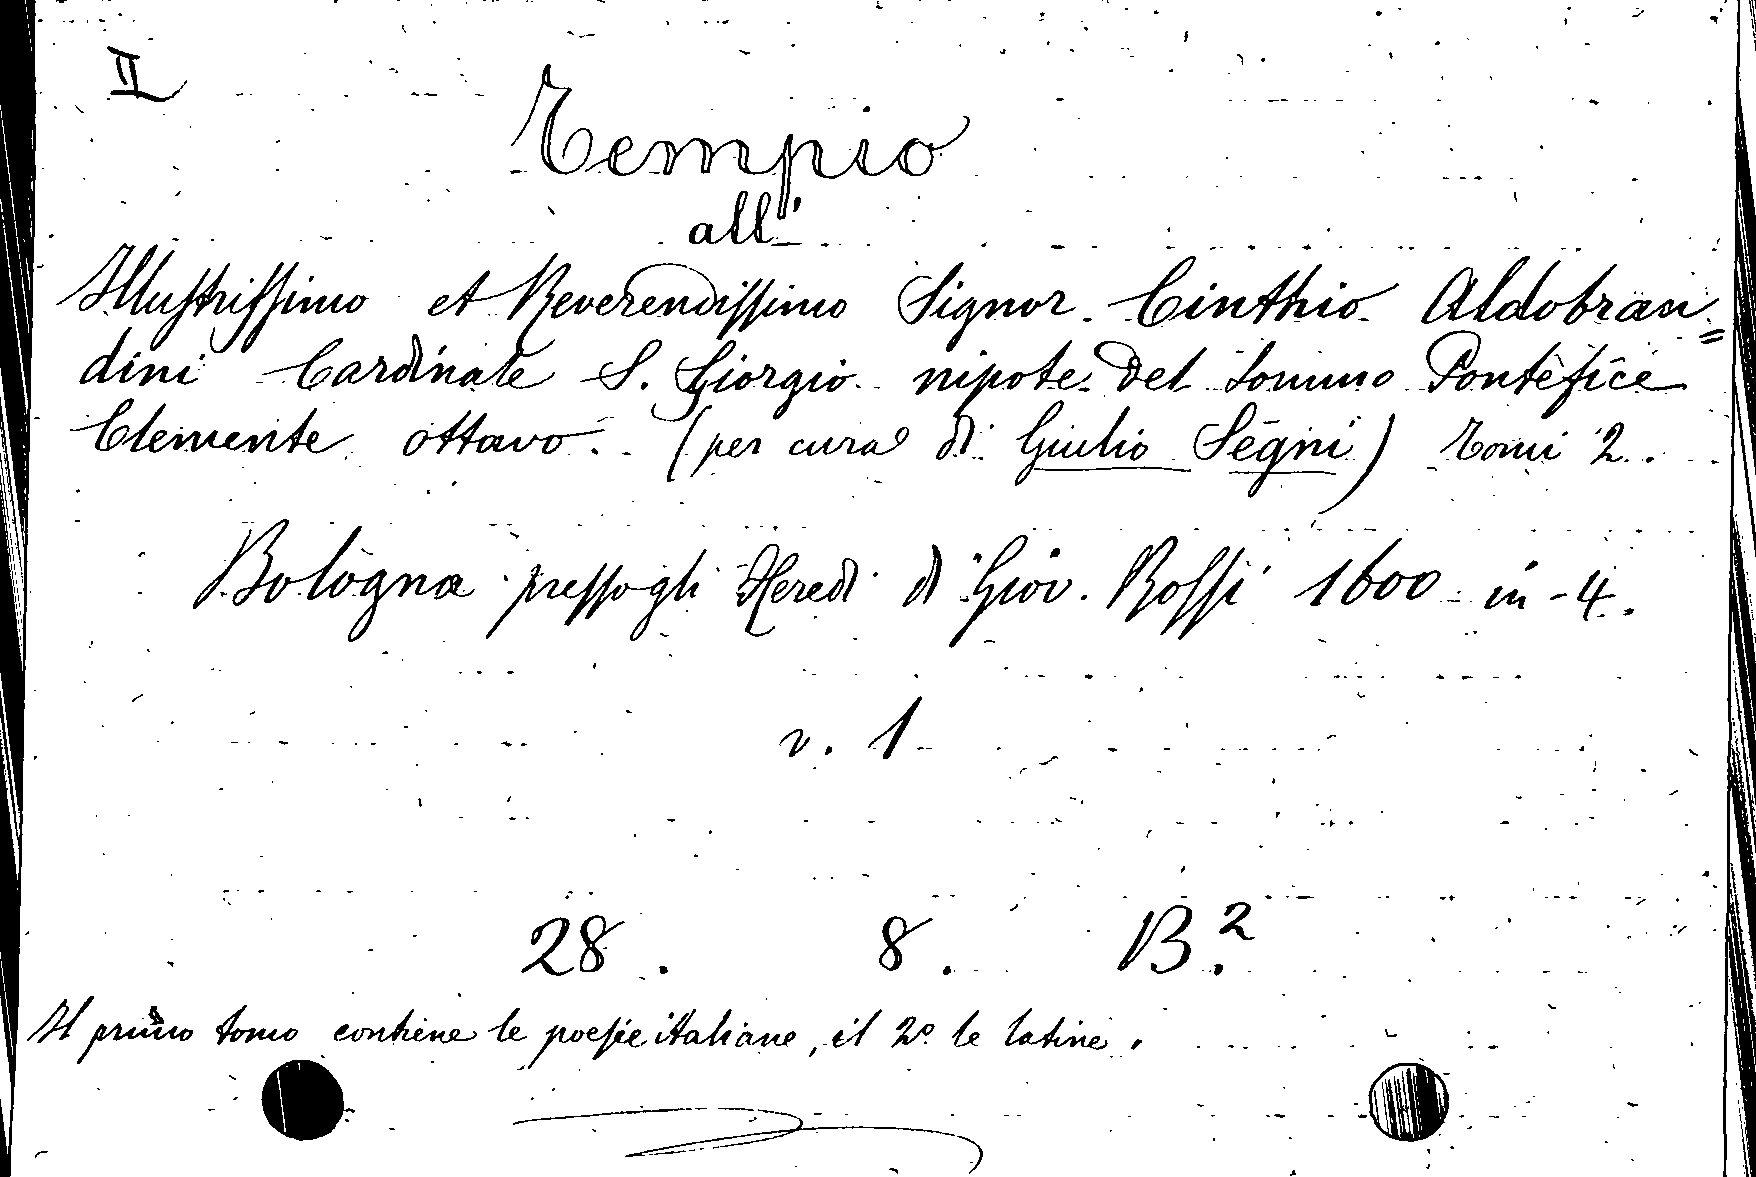 II
Tempio
all'
Illustrissimo et Reverendissimo Signor Cinthio Aldobran=
dini Cardinale S. Giorgio nipote del Sommo Pontefice
Clemente ottavo. (per cura di Giulio Segni) Tomi 2.
Bologna presso gli Heredi di Giov. Rossi 1600 in-4.
v. 1
28. 8. B.2
Il primo tomo contiene le poesie italiane, il 2º le latine.